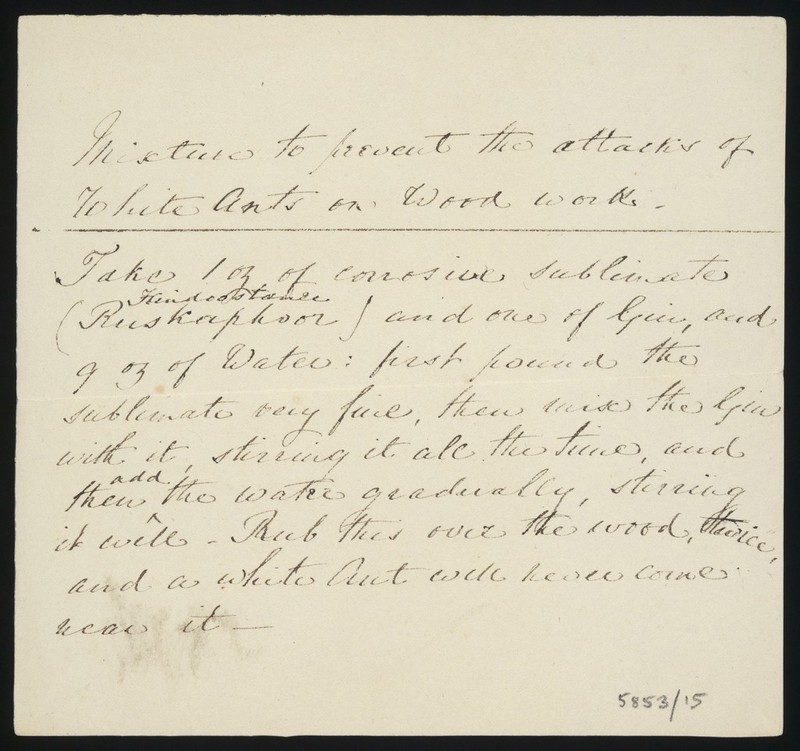 Mixture to prevent the attacks of
White Ants on Wood work -
Take 1 oz of corrosive sublimate
Hindoostanee
(Ruskaphoor) and one of Gin, and
9 oz of Water: first pound the
sublimate very fine, then mix the Gin
with it, stirring it all the time, and
add
then ^ the water gradually, stirring
it well - Rub this over the wood, twice,
and a white Ant will never come
near it —
5853/15